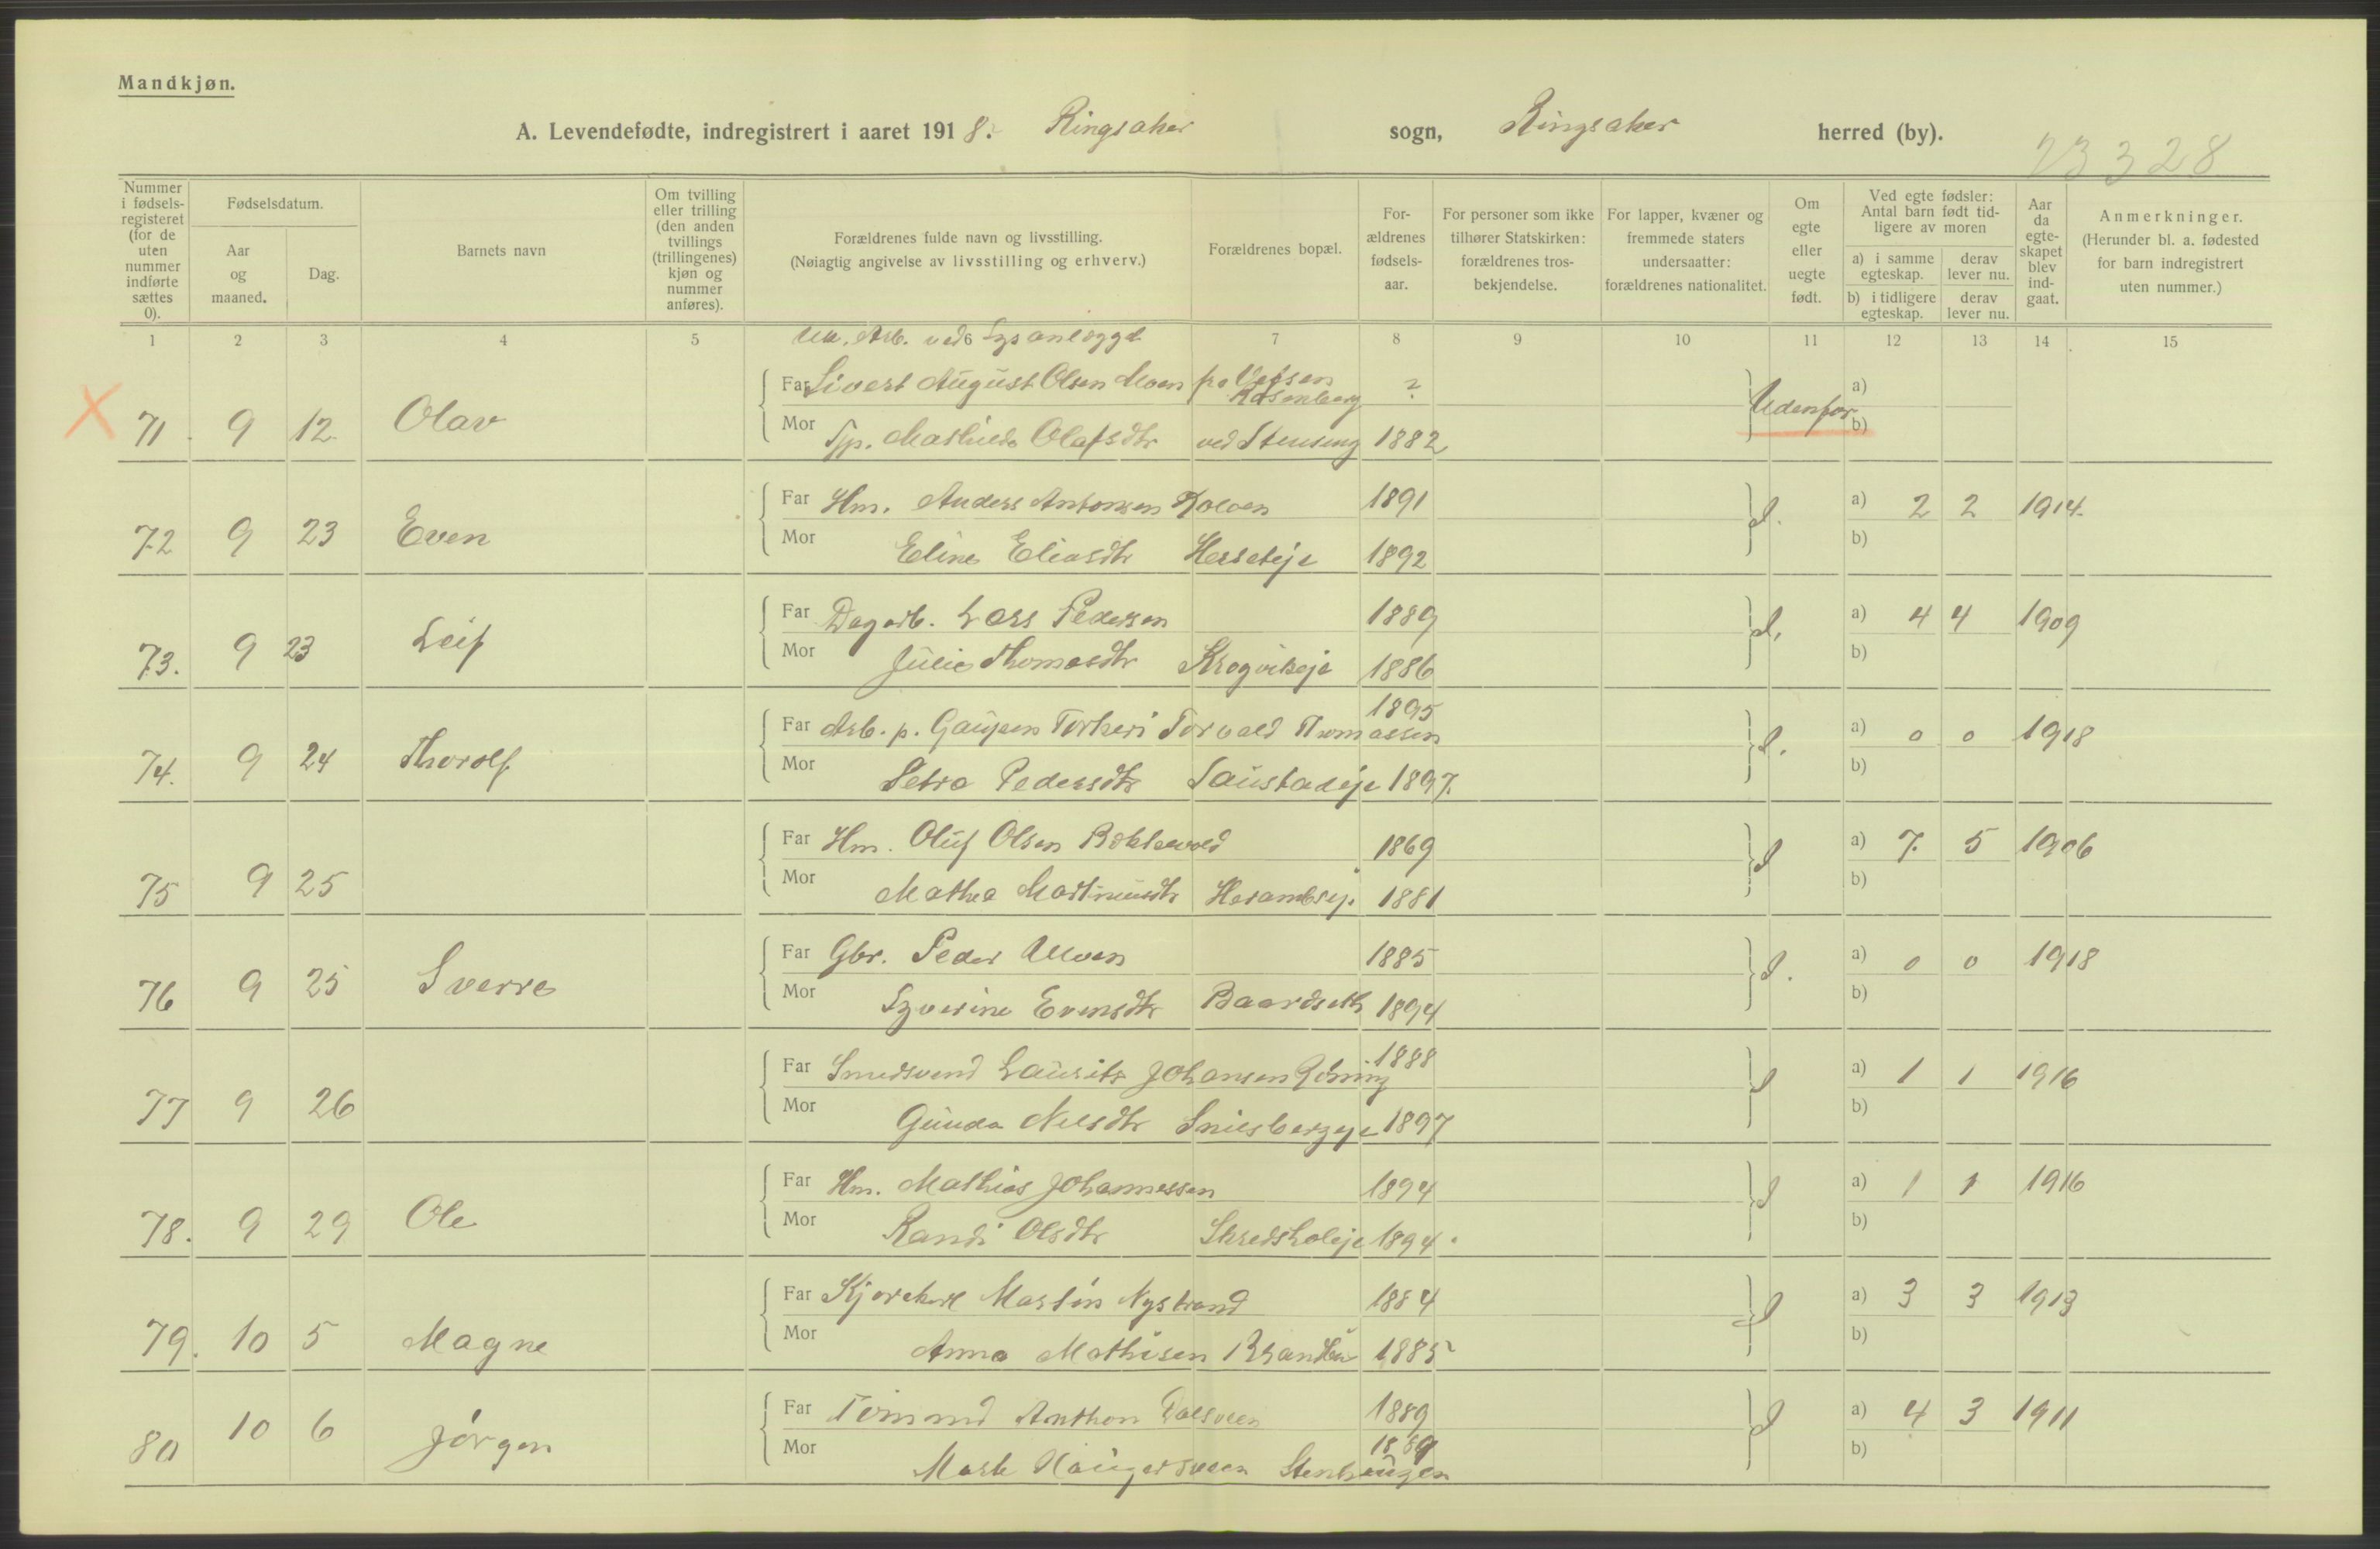 Mandkjøn.
A. Levendefødte, indregistrert i aaret 1918. Ringsaker sogn, Ringsaker herred (by).
23328
Nummer i fødsels-registeret (for de uten nummer indførte sættes 0).
Fødselsdatum.
Aar og maaned.
Dag.
Barnets navn
Om tvilling eller trilling (den anden tvillings (trillingenes) kjøn og nummer anføres).
Forældrenes fulde navn og livsstilling. (Nøiagtig angivelse av livsstilling og erhverv.)
Forældrenes bopæl.
For-ældrenes fødsels-aar.
For personer som ikke tilhører Statskirken: forældrenes tros-bekjendelse.
For lapper, kvæner og fremmede staters undersaatter: forældrenes nationalitet.
Om egte eller uegte født.
Ved egte fødsler: Antal barn født tid-ligere av moren
a) i samme egteskap. derav lever nu.
b) i tidligere egteskap. derav lever nu.
Aar da egte-skapet blev ind-gaat.
Anmerkninger. (Herunder bl. a. fødested for barn indregistrert uten nummer.)
1 2 3 4 5 6 7 8 9 10 11 12 13 14 15
Arb. ved Lysanlægget
Far Sivert August Olsen Moen fra Vefsen ? a)
Rosenberg
X 71 9 12 Olav Udenfor
Mor Mathilde Olafsdtr ved Stenseng 1882 b)
Far Hm. Anders Antonsen Kolven 1891 a) 2 2 1914
72 9 23 Even
Mor Eline Eliasdtr 1892 b)
Far Dagarb. Lars Pedersen 1889 a) 4 4 1909
73. 9 23 Leif
Mor Julie Thomasdtr Krogvikeje 1886 b)
Far Arb. p. Torvald Thomassen 1895 a) 0 0 1918
74. 9 24 Thorolf
Mor Petra Pedersdtr Saustadeje 1897. b)
Far Hm. Oluf Olsen 1869 a) 7. 5 1906
75 9 25
Mor Mathea 1881 b)
Far Gbr. Peder Ulven 1885 a) 0 0 1918
76 9 25 Sverre
Mor Syverine Evensdtr Baardseth 1894 b)
Far Smedsvend Laurits Johansen 1888 a) 1 1 1916
77 9 26
Mor Gunda Nilsdtr 1897 b)
Far Hm. Mathias Johannessen 1894 a) 1 1 1916
78. 9 29 Ole
Mor Randi Olsdtr Skredsholeje 1894. b)
Far Martin Nystrand 1884 a) 3 3 1913
79. 10 5 Magne
Mor Anna Mathisen 1885 b)
Far Anthon 1889 a) 4 3 1911
80 10 6 Jørgen
Mor Stenhaugen 1889 b)